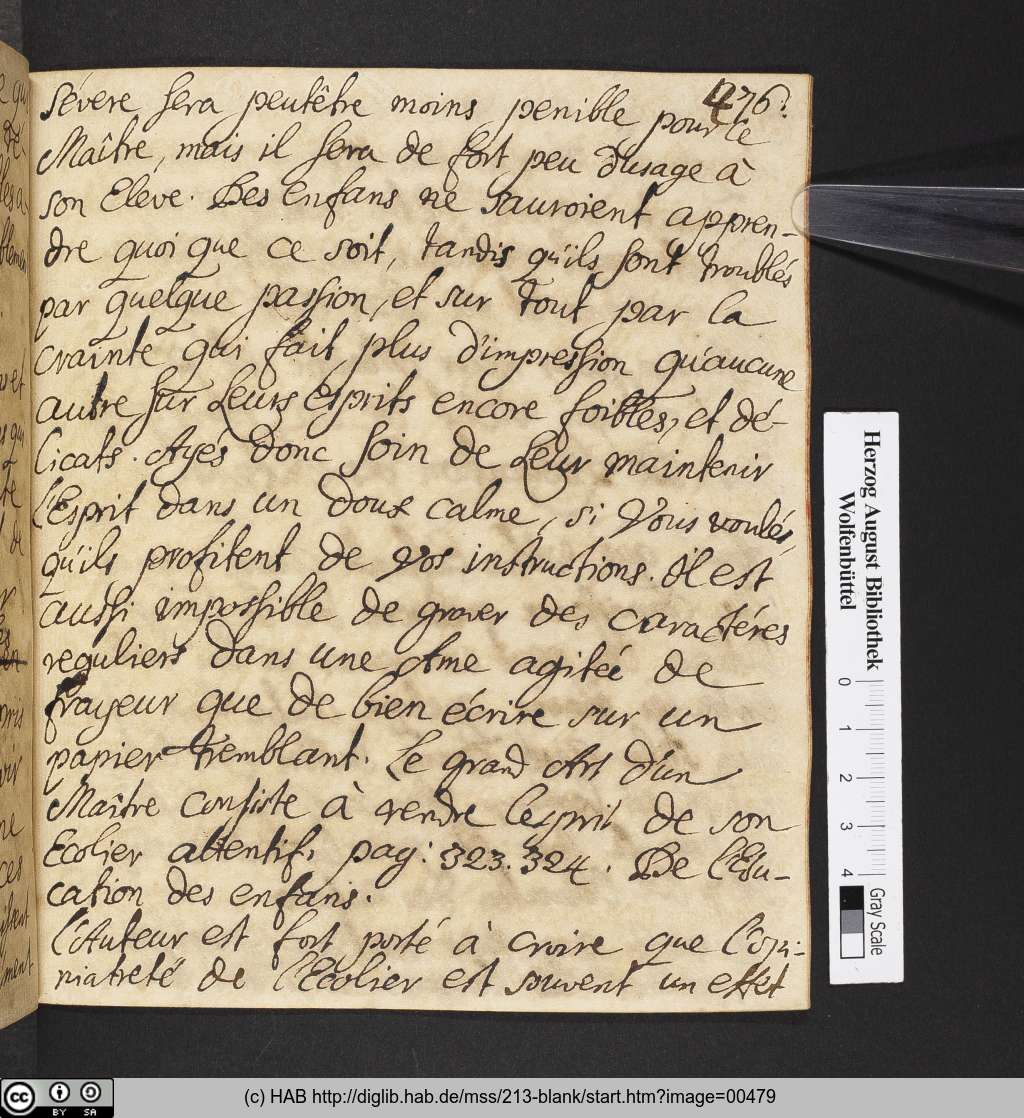 476.
sévere sera peutêtre moins penible pour le
Maître, mais il sera de fort peu d'usage à
son Eleve. Les enfans ne sauroient appren-
dre quoi que ce soit, tandis qu'ils sont troublés
par quelque passion, et sur tout par la
crainte qui fait plus d'impression qu'aucune
autre sur leurs esprits encore foibles, et dé-
licats. Ayés donc soin de leur maintenir
l'Esprit dans un doux calme, si Vous voulés,
qu'ils profitent de vos instructions. Il est
aussi impossible de graver des caractéres
reguliers dans une Ame agitée de
frayeur que de bien écrire sur un
papier tremblant. Le grand Art d'un
Maître consiste à rendre l'esprit de son
Ecolier attentif. pag: 323. 324. De l'Edu-
cation des enfans.
l'Auteur est fort porté à croire que l'opi-
niatreté de l'Ecolier est souvent un effet
Herzog August Bibliothek
Wolfenbüttel
0 1 2 3 4
Gray Scale
CC BY SA
(c) HAB http://diglib.hab.de/mss/213-blank/start.htm?image=00479